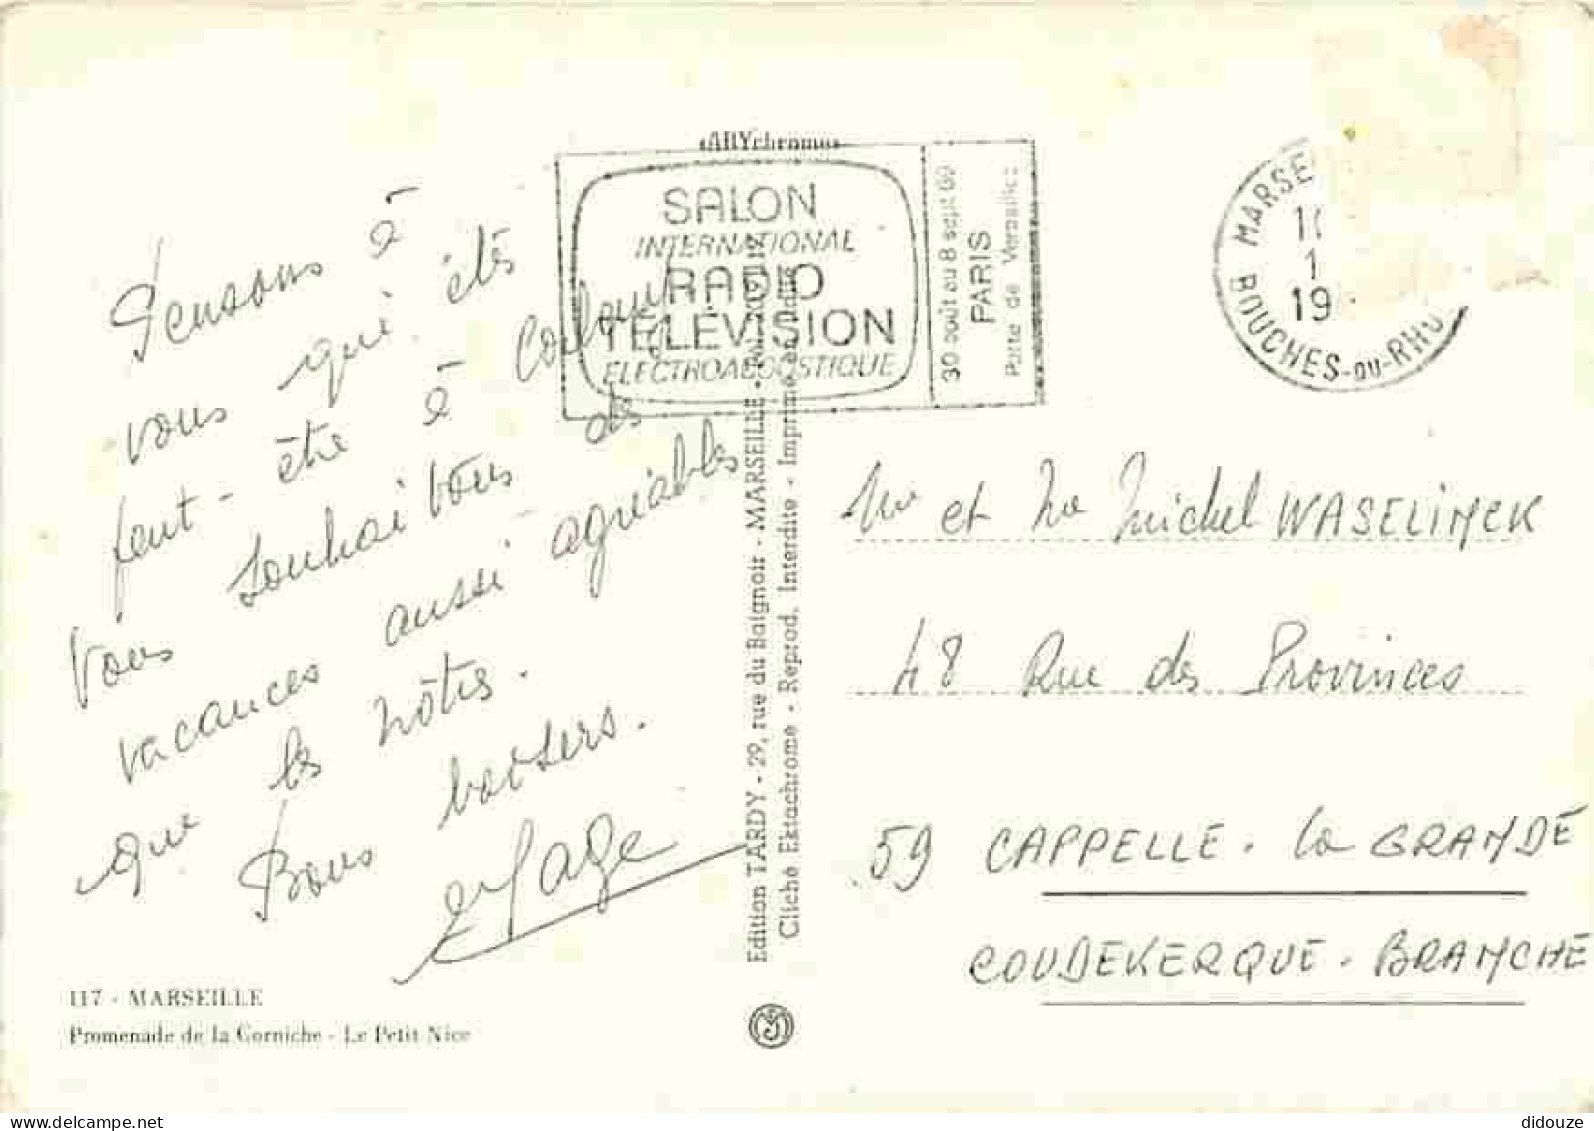 tARYchrome
SALON
INTERNATIONAL
RADIO
TÉLÉVISION
ELECTROACOUSTIQUE
30 août au 8 sept 69
PARIS
Porte de Versailles
MARSE
1
19
BOUCHES-DU-RHO
Pensons à
vous qui êtes
peut-être à
vous souhaitons des
vacances aussi agréables
que les nôtres.
Bons baisers.
Mr et Me Michel WASELINCK
48 Rue des Provinces
59 CAPPELLE. la GRANDE
COUDEKERQUE. BRANCHE
Edition TARDY - 29, rue du Baignoir - MARSEILLE
Cliché Ektachrome - Reprod. Interdite - Imprimé en Italie
117 - MARSEILLE
Promenade de la Corniche - Le Petit Nice
www.delcampe.net
didouze